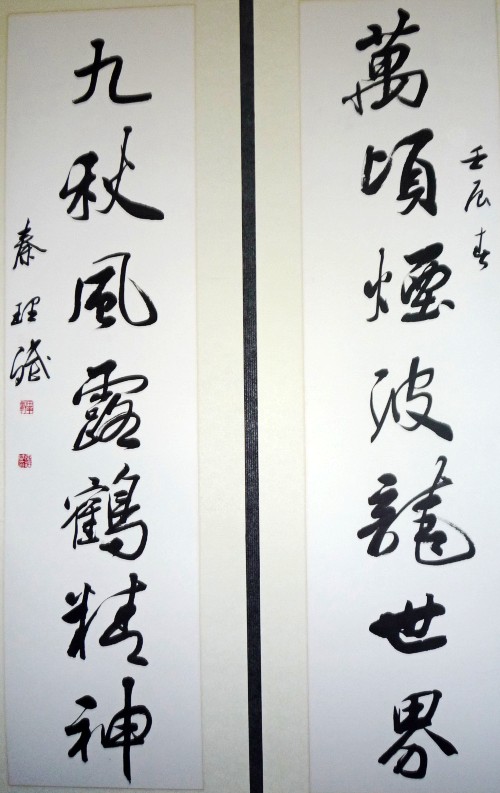 萬頃煙波龍世界
壬辰春
九秋風露鶴精神
秦理斌